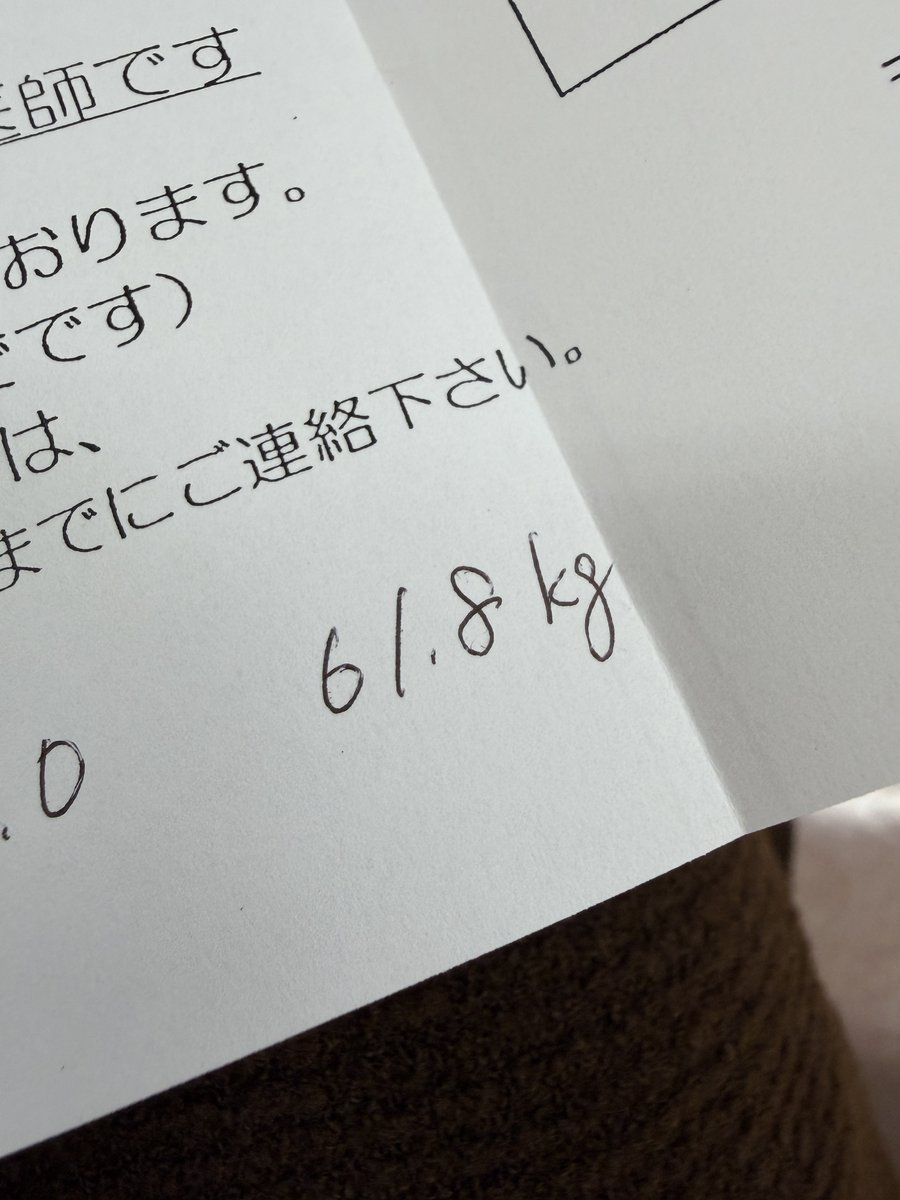 医師です
おります。
どです）
は、
までにご連絡下さい。
61.8kg
.0